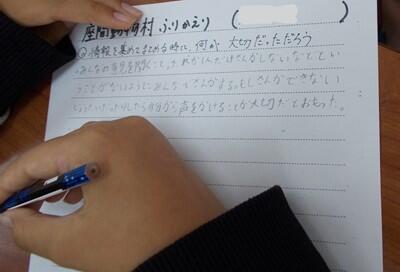 座間動物村 ふりかえり ( )
Q 情報を集めてまとめる時に、何が大切だっただろう
みんなの意見を聞くこと。だれか1人だけさんかしないなどとい
うことがないようにみんなでさんかする。もしさんかできない
人がいたりしたら自分から声をかけることが大切だとおもった。